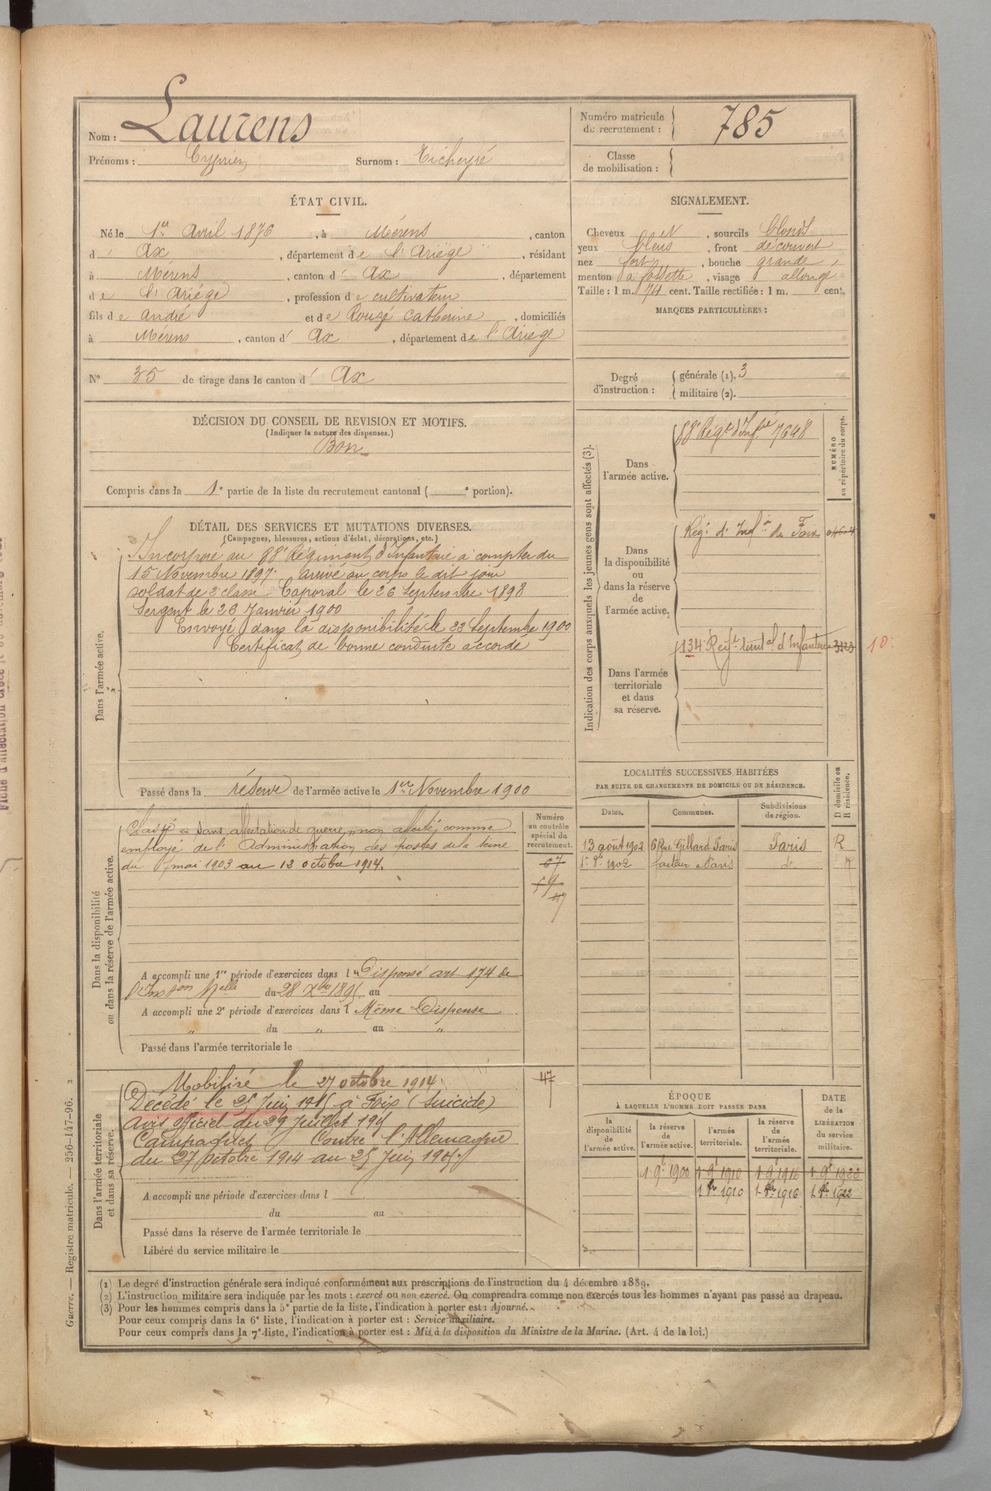 Nom : Laurens
Prénoms : Cyprien Surnom : Ticheyré
Numéro matricule
du recrutement : 785
Classe
de mobilisation :
ÉTAT CIVIL.
Né le 1er Avril 1876, à Mérens, canton
d' Ax, département de l'Ariège, résidant
à Mérens, canton d' Ax, département
de l'Ariège, profession de cultivateur
fils de André et de Rouzé Catherine, domiciliés
à Mérens, canton d' Ax, département de l'Ariège
N° 35 de tirage dans le canton d' Ax
SIGNALEMENT.
Cheveux N, sourcils blonds
yeux bleus, front découvert
nez fort, bouche grande
menton à fossette, visage allongé
Taille : 1 m. 74 cent. Taille rectifiée : 1 m. cent.
MARQUES PARTICULIÈRES :
Degré
d'instruction :
générale (1). 3
militaire (2).
DÉCISION DU CONSEIL DE REVISION ET MOTIFS.
(Indiquer la nature des dispenses.)
Bon
Compris dans la 1e partie de la liste du recrutement cantonal ( e portion).
DÉTAIL DES SERVICES ET MUTATIONS DIVERSES.
(Campagnes, blessures, actions d'éclat, décorations, etc.)
Dans l'armée active.
Incorporé au 88e Régiment d'Infanterie à compter du
15 Novembre 1897. arrivé au corps le dit jour
soldat de 2e classe Caporal le 26 Septembre 1898
Sergent le 26 Janvier 1900
Envoyé dans la disponibilité le 23 Septembre 1900
Certificat de bonne conduite accordé
Passé dans la réserve de l'armée active le 1er Novembre 1900
Indication des corps auxquels les jeunes gens sont affectés (3).
NUMÉRO
au répertoire du corps.
Dans
l'armée active.
88e Régt d'Infie 7648
Dans
la disponibilité
ou
dans la réserve
de
l'armée active.
Régt d'Infie de Foix
Dans l'armée
territoriale
et dans
sa réserve.
134e Regt territal d'Infanterie 3123
10
Dans la disponibilité
ou dans la réserve de l'armée active.
Numéro
au contrôle
spécial du
recrutement.
Classé "sans affectation de guerre, non affecté comme
employé de l'Administration des postes de la Seine
du 7 mai 1903 au 12 octobre 1914.
A accompli une 1re période d'exercices dans l Dispensé art 174 de
l'Inston Melle du 28 Xbre 1895 au
A accompli une 2e période d'exercices dans l Même Dispense
du " au "
Passé dans l'armée territoriale le
LOCALITÉS SUCCESSIVES HABITÉES
PAR SUITE DE CHANGEMENTS DE DOMICILE OU DE RÉSIDENCE.
Dates. Communes. Subdivisions
de région. D domicile ou
R résidence.
13 août 1902 6 Rue Gillard Paris Paris R
facteur à Paris do R
Dans l'armée territoriale
et dans sa réserve.
Mobilisé le 27 octobre 1914.
Décédé le 25 Juin 1915 à Foix (Suicide)
avis officiel du 29 Juillet 1915
Campagnes Contre l'Allemagne
du 27 octobre 1914 au 25 Juin 1915
A accompli une période d'exercices dans l
du au
Passé dans la réserve de l'armée territoriale le
Libéré du service militaire le
ÉPOQUE
À LAQUELLE L'HOMME DOIT PASSER DANS
DATE
de la
LIBÉRATION
du service
militaire.
la
disponibilité
de
l'armée active.
la réserve
de
l'armée active.
l'armée
territoriale.
la réserve
de
l'armée
territoriale.
1 9e 1900 1 9e 1910 1 9e 1916 1 9e 1922
1 8re 1910 1 8re 1916 1 8re 1922
(1) Le degré d'instruction générale sera indiqué conformément aux prescriptions de l'instruction du 4 décembre 1889.
(2) L'instruction militaire sera indiquée par les mots : exercé ou non exercé. On comprendra comme non exercés tous les hommes n'ayant pas passé au drapeau.
(3) Pour les hommes compris dans la 5e partie de la liste, l'indication à porter est : Ajourné.
Pour ceux compris dans la 6e liste, l'indication à porter est : Service auxiliaire.
Pour ceux compris dans la 7e liste, l'indication à porter est : Mis à la disposition du Ministre de la Marine. (Art. 4 de la loi.)
Guerre. — Registre matricule. — 256-147-96.